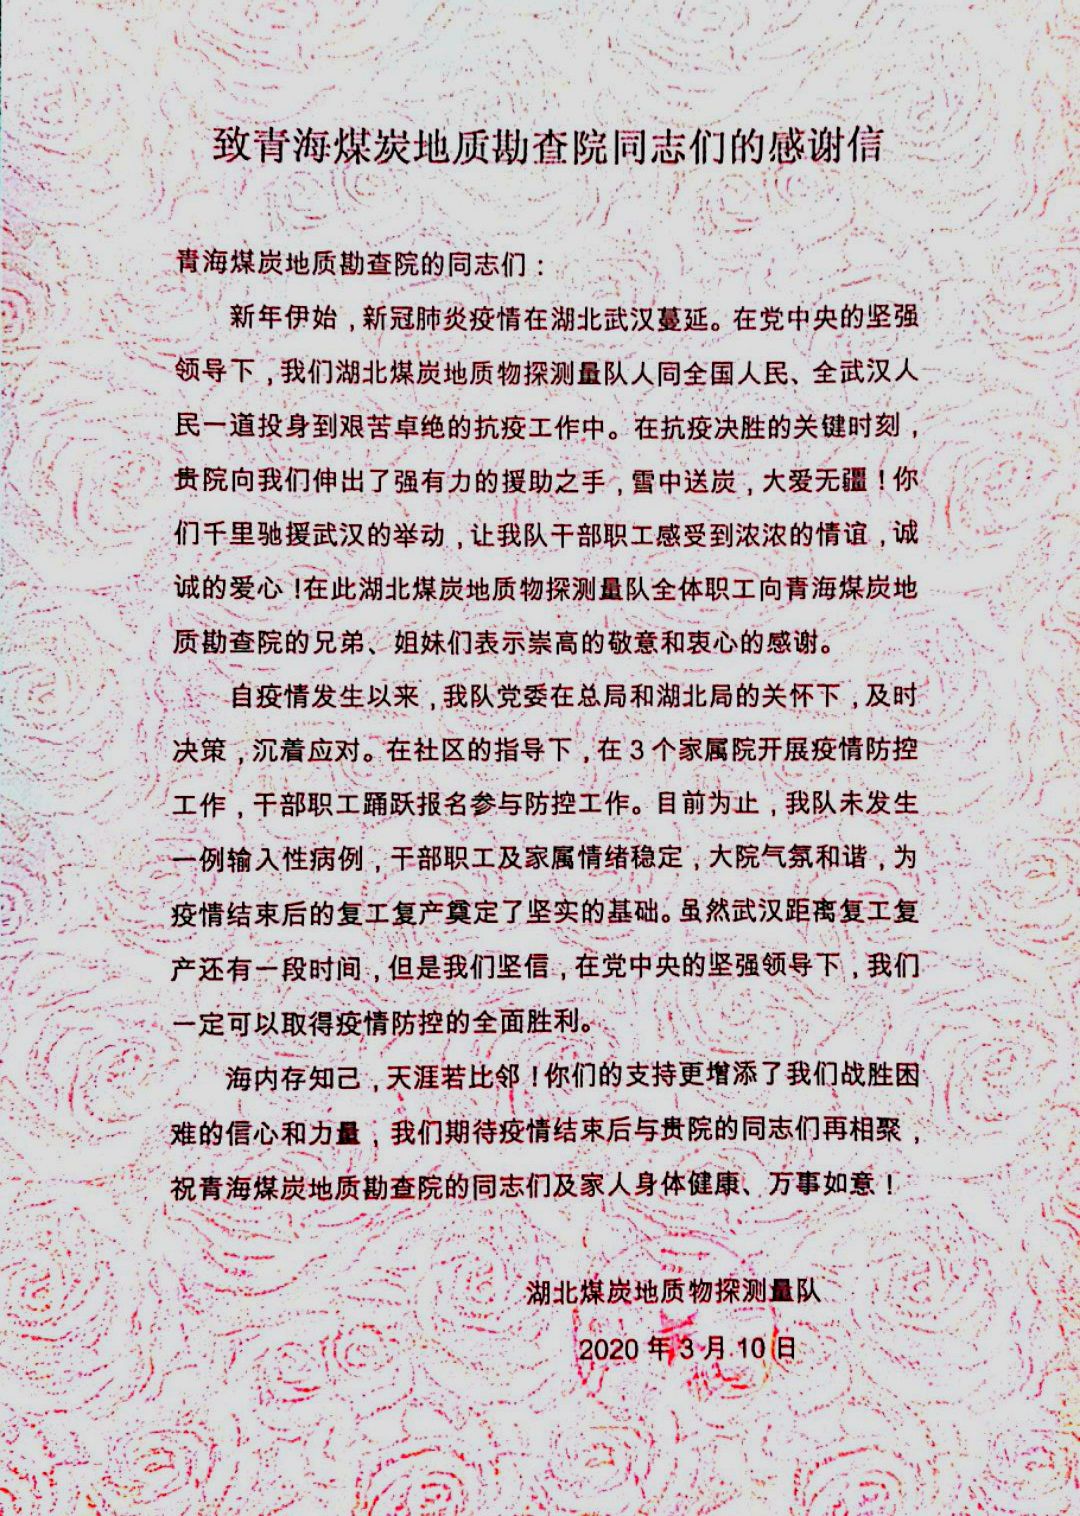 致青海煤炭地质勘查院同志们的感谢信
青海煤炭地质勘查院的同志们：
新年伊始，新冠肺炎疫情在湖北武汉蔓延。在党中央的坚强
领导下，我们湖北煤炭地质物探测量队人同全国人民、全武汉人
民一道投身到艰苦卓绝的抗疫工作中。在抗疫决胜的关键时刻，
贵院向我们伸出了强有力的援助之手，雪中送炭，大爱无疆！你
们千里驰援武汉的举动，让我队干部职工感受到浓浓的情谊，诚
诚的爱心！在此湖北煤炭地质物探测量队全体职工向青海煤炭地
质勘查院的兄弟、姐妹们表示崇高的敬意和衷心的感谢。
自疫情发生以来，我队党委在总局和湖北局的关怀下，及时
决策，沉着应对。在社区的指导下，在3个家属院开展疫情防控
工作，干部职工踊跃报名参与防控工作。目前为止，我队未发生
一例输入性病例，干部职工及家属情绪稳定，大院气氛和谐，为
疫情结束后的复工复产奠定了坚实的基础。虽然武汉距离复工复
产还有一段时间，但是我们坚信，在党中央的坚强领导下，我们
一定可以取得疫情防控的全面胜利。
海内存知己，天涯若比邻！你们的支持更增添了我们战胜困
难的信心和力量，我们期待疫情结束后与贵院的同志们再相聚，
祝青海煤炭地质勘查院的同志们及家人身体健康、万事如意！
湖北煤炭地质物探测量队
2020年3月10日